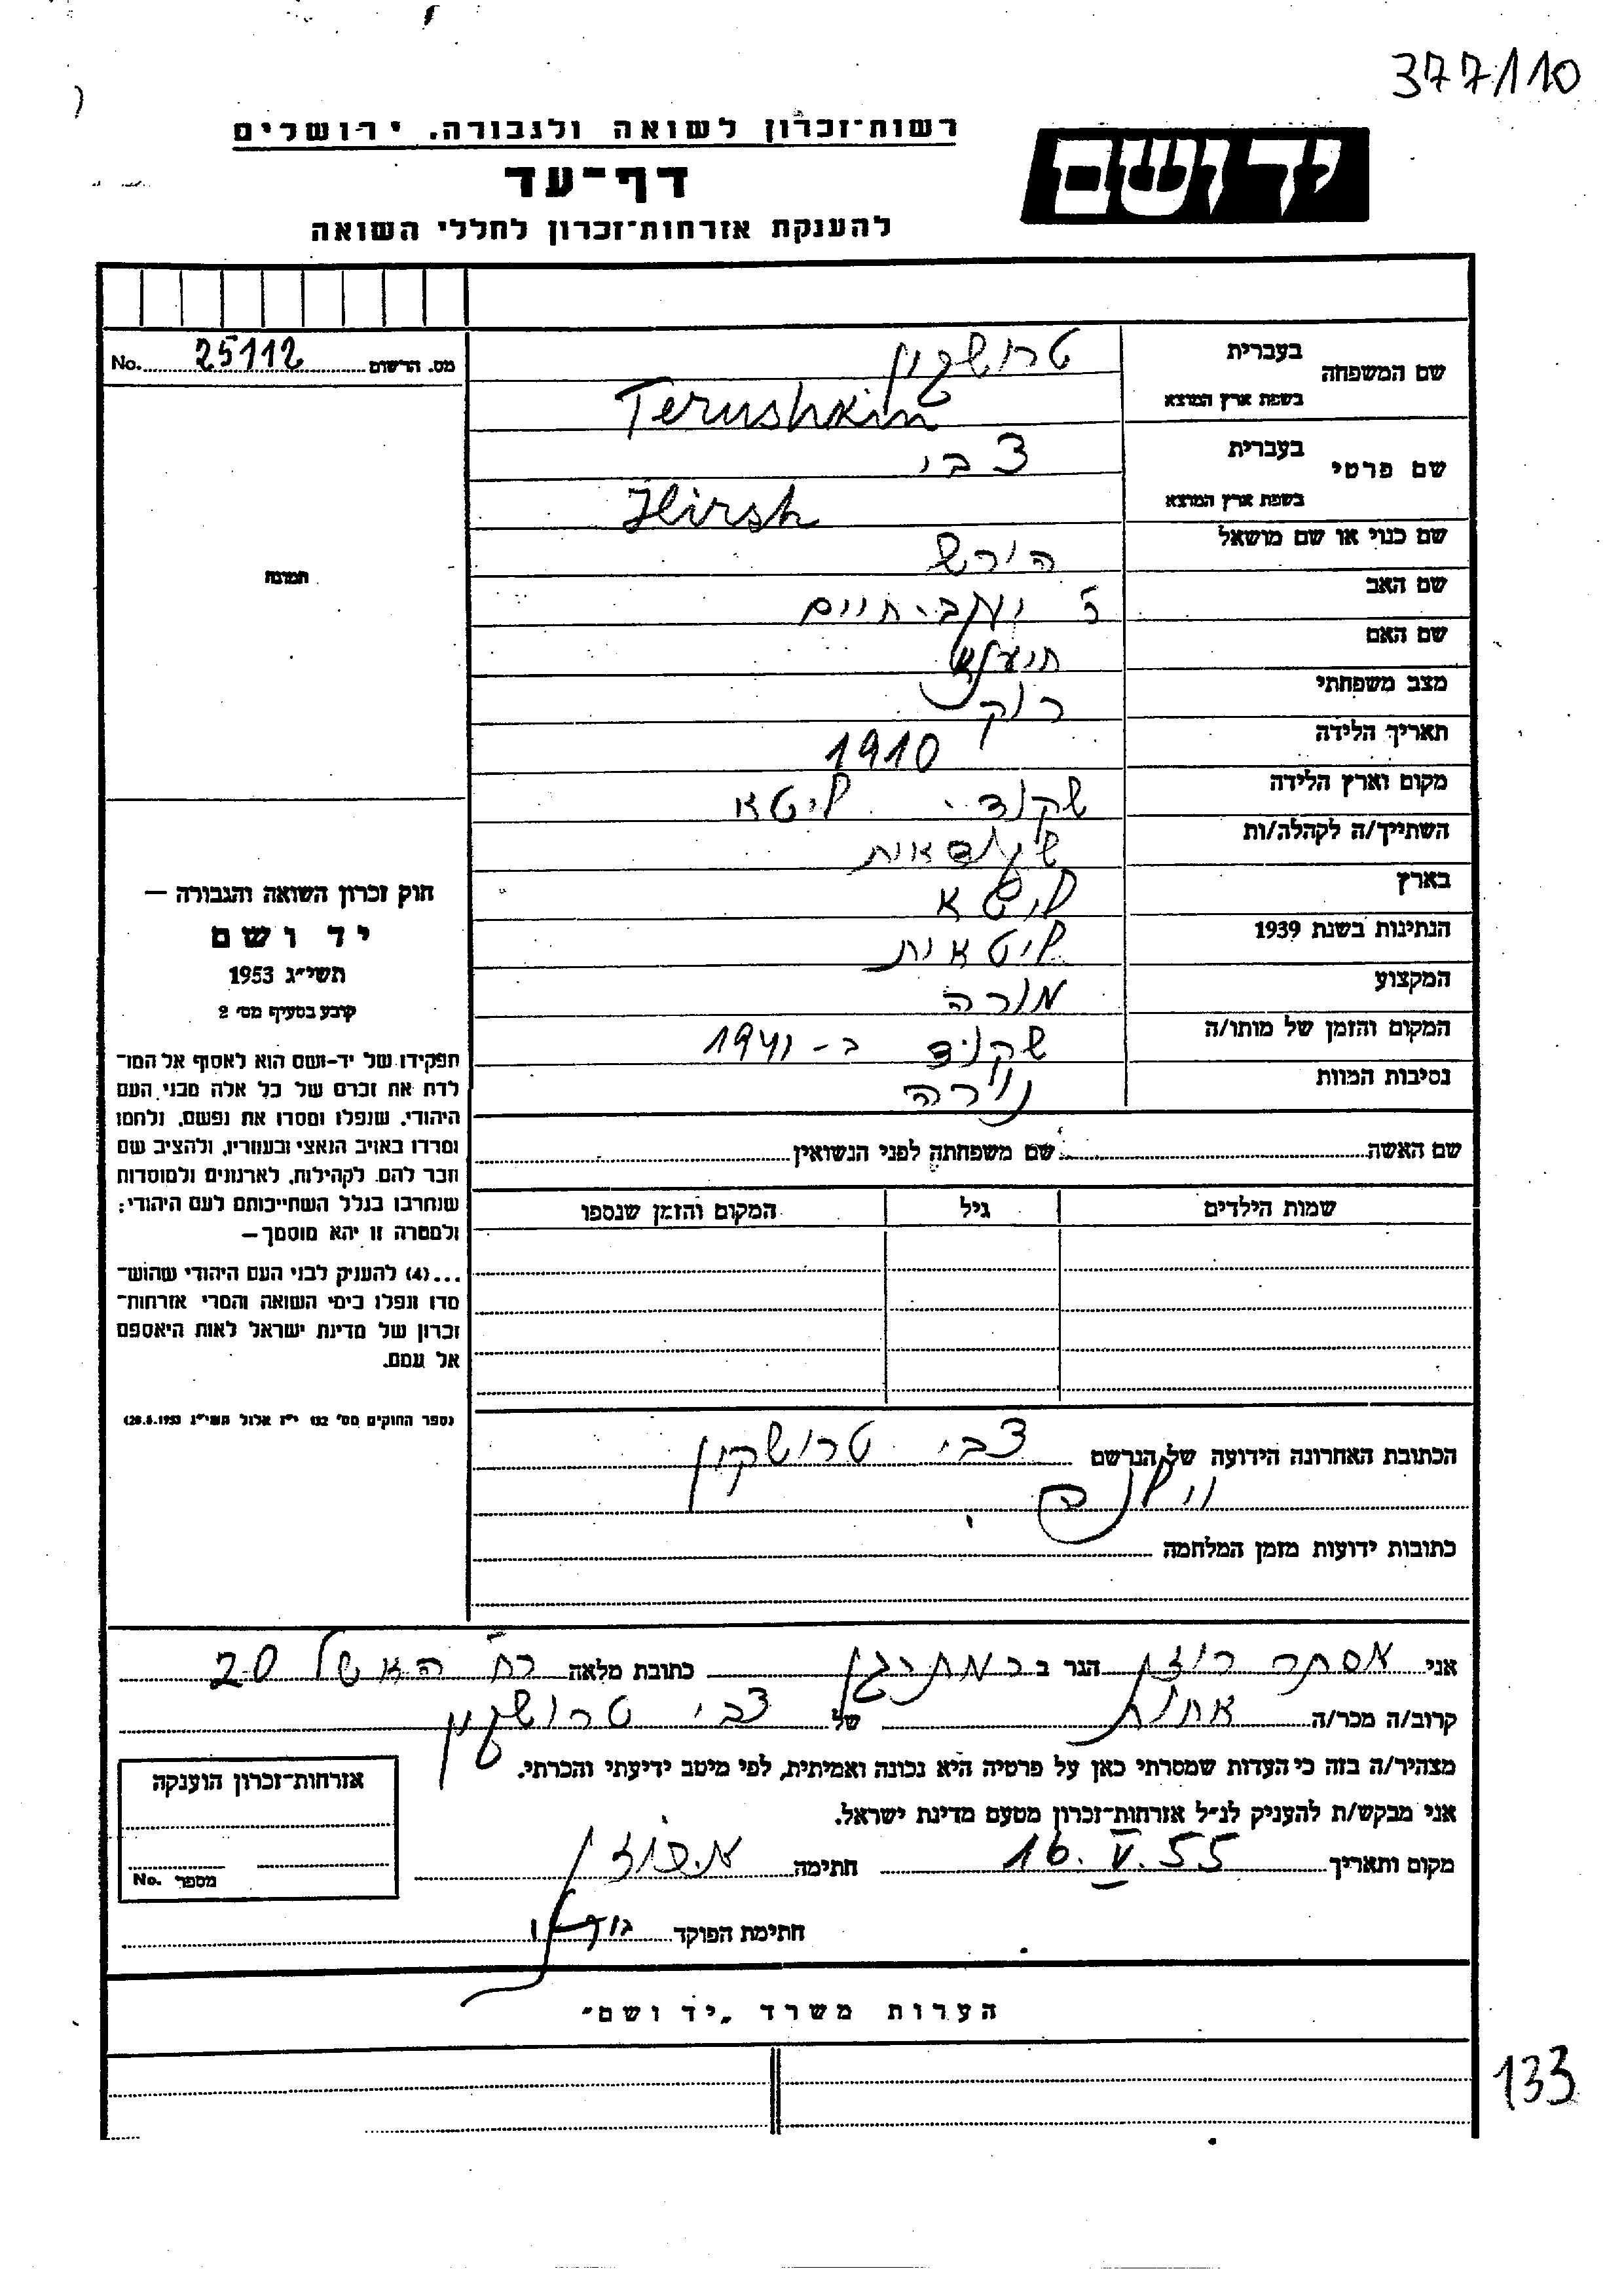 377/110
רשות־זכרון לשואה ולגבורה. ירושלים
יד ושם
דף־עד
להענקת אזרחות־זכרון לחללי השואה
מס. הרשום 25112 No.
שם המשפחה
בעברית טרושקין
בשפת ארץ המוצא Terushkin
שם פרטי
בעברית צבי
בשפת ארץ המוצא Hirsh
שם כנוי או שם מושאל הירש
שם האב יעקב-חיים
שם האם
מצב משפחתי רוק
תאריך הלידה 1910
מקום וארץ הלידה שקוד. ליטא
השתייך/ה לקהלה/ות
בארץ ליטא
הנתינות בשנת 1939 ליטאית
המקצוע מורה
המקום והזמן של מותו/ה ב-1941
נסיבות המוות נורה
שם האשה שם משפחתה לפני הנשואין
שמות הילדים גיל המקום והזמן שנספו
תמונה
חוק זכרון השואה והגבורה —
יד ושם
תשי״ג 1953
קובע בסעיף מס׳ 2
תפקידו של יד-ושם הוא לאסוף אל המו־
לדת את זכרם של כל אלה מבני העם
היהודי, שנפלו ומסרו את נפשם, נלחמו
ומרדו באויב הנאצי ובעוזריו, ולהציב שם
וזכר להם, לקהילות, לארגונים ולמוסדות
שנחרבו בגלל השתייכותם לעם היהודי;
ולמטרה זו יהא מוסמך —
...(4) להעניק לבני העם היהודי שהוש־
מדו ונפלו בימי השואה והמרי אזרחות־
זכרון של מדינת ישראל לאות היאספם
אל עמם.
(ספר החוקים מס׳ 132 י״ז אלול תשי״ג 28.8.1953)
הכתובת האחרונה הידועה של הנרשם צבי טרושקין
כתובות ידועות מזמן המלחמה
אני אסתר רוזן הגר ב רמת-גן כתובת מלאה רח' האשל 20
קרוב/ה מכר/ה אחות של צבי טרושקין
מצהיר/ה בזה כי העדות שמסרתי כאן על פרטיה היא נכונה ואמיתית, לפי מיטב ידיעתי והכרתי.
אני מבקש/ת להעניק לנ״ל אזרחות־זכרון מטעם מדינת ישראל.
מקום ותאריך 16.V.55 חתימה א. רוזן
חתימת הפוקד
אזרחות־זכרון הוענקה
מספר No.
הערות משרד „יד ושם״
133